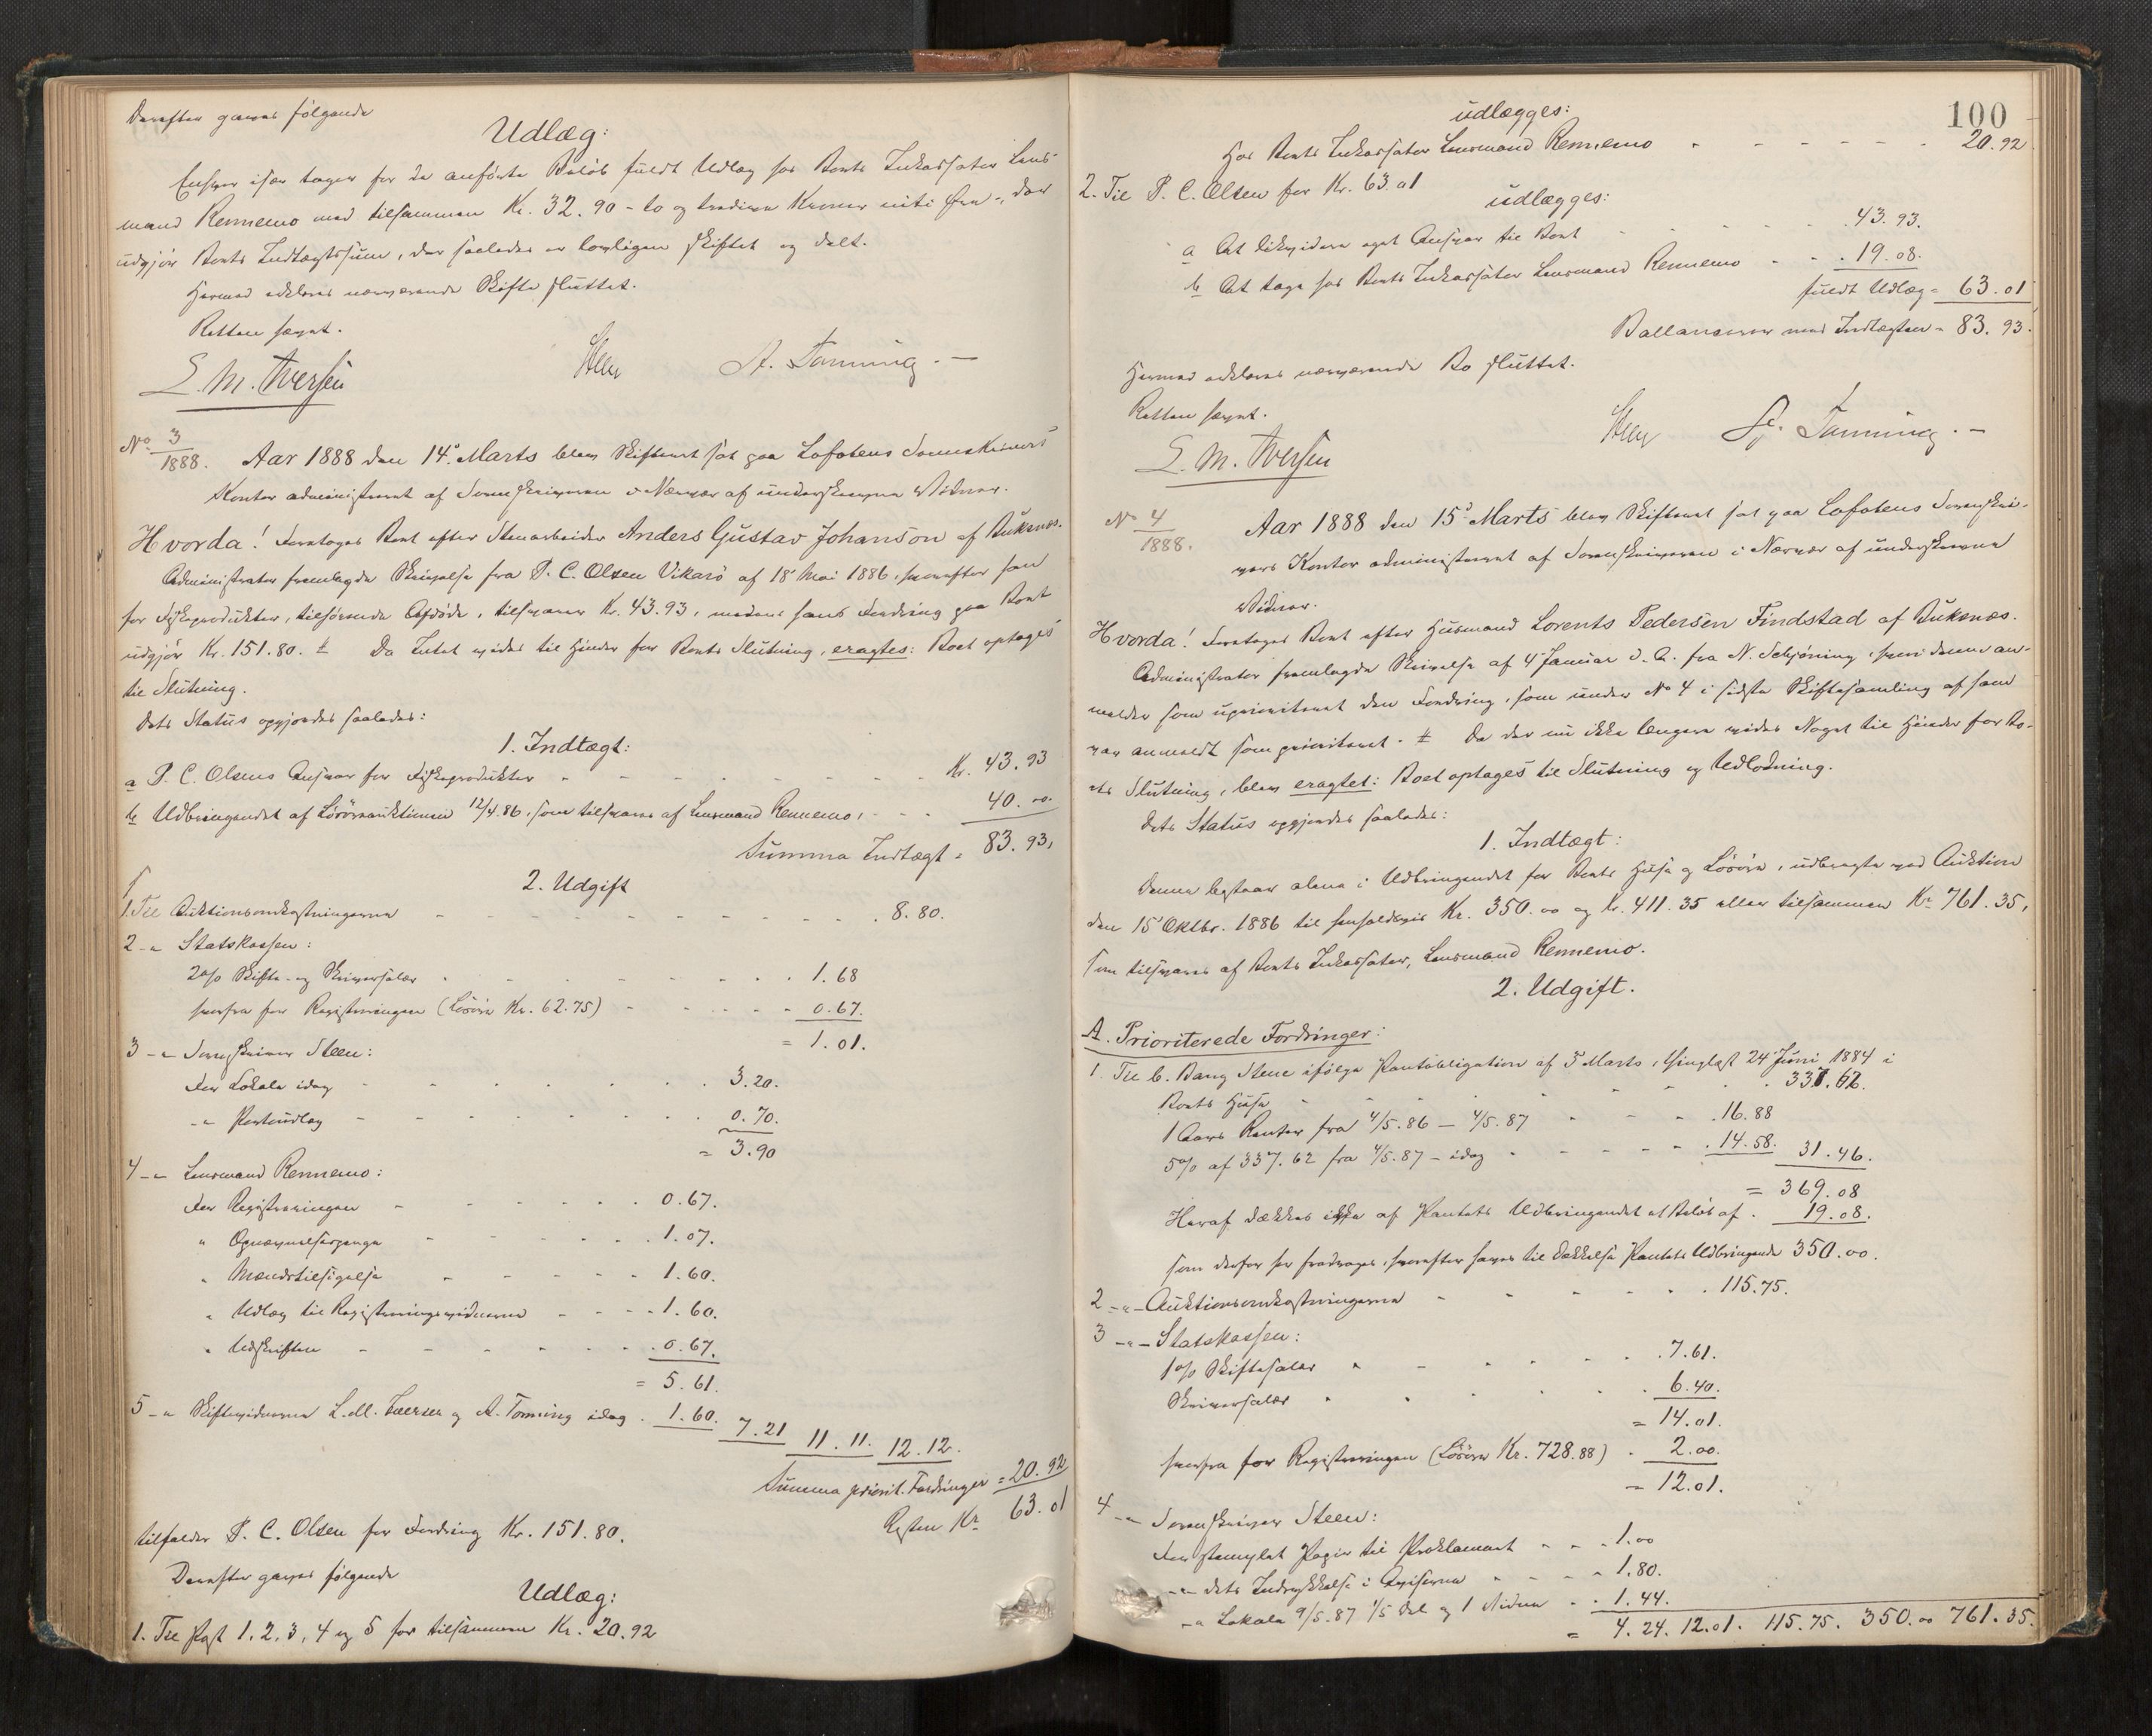 Derefter gaves følgende
Udlæg:
Enhver især tager for de anførte Beløb fuldt Udlæg hos Boets Inkassator Lens-
mand Rennemo med tilsammen Kr. 32.90 – to og tredive Kroner niti Øre –, der
udgjør Boets Indtægtssum, der saaledes er lovligen skiftet og delt.
Hermed erklæres nærværende Skifte sluttet.
Retten hævet.
L. M. Iversen Steen A. Tonning. –
No 3/1888. Aar 1888 den 14de Marts blev Skifteret sat paa Lofotens Sorenskrivers
Kontor administreret af Sorenskriveren i Nærvær af underskrevne Vidner.
Hvorda! Foretoges Boet efter Stenarbeider Anders Gustav Johanson af Buksnæs.
Administrator fremlagde Skrivelse fra P. C. Olsen Vikarö af 18de Mai 1886, hvorefter han
for Fiskeprodukter, tilhørende Afdøde, tilsvarer Kr. 43.93, medens hans Fordring paa Boet
udgjør Kr. 151.80. # Da Intet vides til Hinder for Boets Slutning, eragtes: Boet optages
til Slutning.
Dets Status opgjordes saaledes:
1. Indtægt:
a P. C. Olsens Ansvar for Fiskeprodukter - - - Kr. 43.93
b Udbringendet af Løsøreauktionen 12/4.86, som tilsvares af Lensmand Rennemo, - - 40.00.
Summa Indtægt = 83.93,
2. Udgift
1. Til Auktionsomkostningerne - - - 8.80.
2 - " Statskassen:
2 o/o Skifte- og Skriversalær - - - 1.68
herfra for Registreringen (Løsøre Kr. 62.75) - - - 0.67.
= 1.01.
3 - " Sorenskriver Steen:
For Lokale idag - - - 3.20.
- " Portoudlæg - - - 0.70.
= 3.90
4 - " Lensmand Rennemo:
For Registreringen - - - 0.67.
" Opnævnelsespenge - - - 1.07.
" Mændstilsigelse - - - 1.60.
" Udlæg til Registreringsvidnerne - - - 1.60.
" Udskriften - - - 0.67.
= 5.61.
5 - " Skiftevidnerne L. M. Iversen og A. Tonning idag . 1.60. 7.21 11.11. 12.12.
Summa priorit. Fordringer = 20.92
Resten Kr. 63.01
tilfalder P. C. Olsen for Fordring Kr. 151.80.
Derefter gaves følgende
Udlæg:
1. Til Post 1, 2, 3, 4 og 5 for tilsammen Kr. 20.92
100
udlægges:
Hos Boets Inkassator Lensmand Rennemo - - - 20.92
2. Til P. C. Olsen for Kr. 63.01
udlægges:
a At likvidere eget Ansvar til Boet - - - 43.93.
b At tage hos Boets Inkassator Lensmand Rennemo - - . 19.08.
fuldt Udlæg = 63.01
Ballancerer med Indtægten = 83.93.
Hermed erklæres nærværende Bo sluttet.
Retten hævet.
L. M. Iversen Steen A. Tonning. –
No 4/1888. Aar 1888 den 15de Marts blev Skifteret sat paa Lofotens Sorenskri-
vers Kontor administreret af Sorenskriveren i Nærvær af underskrevne
Vidner.
Hvorda! Foretoges Boet efter Husmand Lorents Pedersen Findstad af Buksnæs.
Administrator fremlagde Skrivelse af 4de Januar d. A. fra N. Schjöning, hvori denne an-
melder som uprioriteret den Fordring, som under No 4 i sidste Skiftesamling af ham
var anmeldt som prioriteret. # Da der nu ikke længere vides Noget til Hinder for Bo-
ets Slutning, blev eragtet: Boet optages til Slutning og Udlodning.
Dets Status opgjordes saaledes:
1. Indtægt:
Denne bestaar alene i Udbringendet for Boets Huse og Løsøre, udbragte ved Auktion
den 15de Oktbr. 1886 til henholdsvis Kr. 350.00 og Kr. 411.35 eller tilsammen Kr. 761.35,
som tilsvares af Boets Inkassator, Lensmand Rennemo.
2. Udgift.
A. Prioriterede Fordringer:
1. Til C. Bang Steen ifølge Pantobligation af 5 Marts, thinglæst 24de Juni 1884 i
Boets Huse - - - 337.62.
1 Aars Renter fra 4/5.86 – 4/5.87 - - - 16.88
5 o/o af 337.62 fra 4/5.87 – idag - - - 14.58. 31.46.
= 369.08
Heraf dækkes ikke af Pantets Udbringende et Beløb af . 19.08.
som derfor her fradrages, hvorefter haves til Dækkelse Pantets Udbringende 350.00.
2 - " - Auktionsomkostningerne - - - 115.75.
3 - " - Statskassen:
1 o/o Skiftesalær - - - 7.61.
Skriversalær - - - 6.40.
= 14.01.
herfra for Registreringen (Løsøre Kr. 728.88) . 2.00.
= 12.01.
4 - " Sorenskriver Steen:
For stemplet Papir til Proklamaet - - - 1.00
- " - dets Indrykkelse i Aviserne - - - 1.80.
- " Lokale 9/5.87 1/5 Del og 1 Vidne - . 1.44.
= 4.24. 12.01. 115.75. 350.00 761.35.